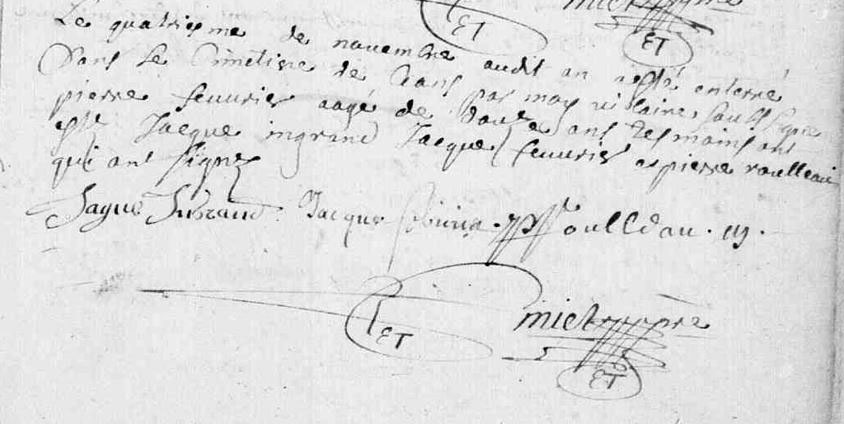 ET
ET
Le quatriesme de novembre audit an a esté enterré
Dans le Cimetiere de Crans par moy vicaire soubssigné
pierre feuvrier aagé de douze ans tesmoins ont
esté Jacque ingrand Jacque feuvrier et pierre roulleau
qui ont signez
Jaque Ingrand. Jacque P Roulleau.
ET
ET